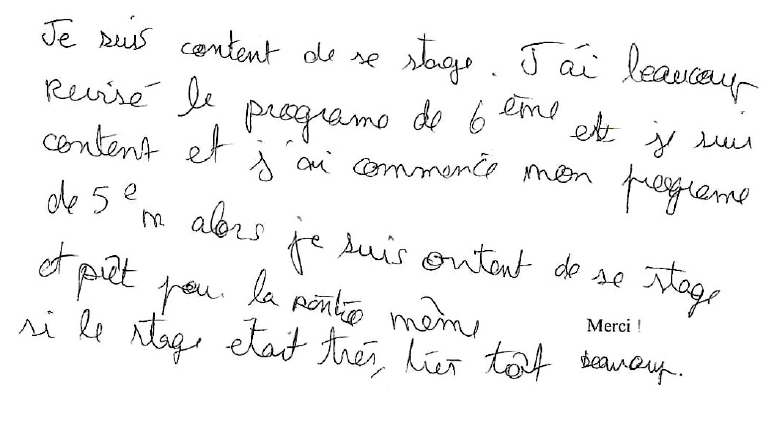 Je suis content de se stage. J'ai beaucoup
revisé le programe de 6 ème et je suis
content et j'ai commencé mon programe
de 5 e m alors je suis ontent de se stage
et prêt pou la rentrée même
si le stage etait très, très tôt
Merci !
beaucoup.